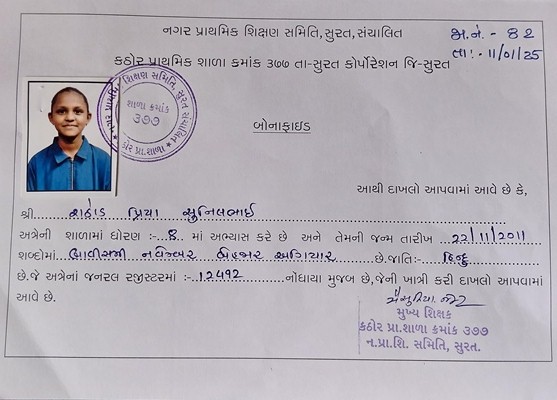 નગર પ્રાથમિક શિક્ષણ સમિતિ,સુરત,સંચાલિત
જા.નં. - 82
કઠોર પ્રાથમિક શાળા ક્રમાંક ૩૭૭ તા-સુરત કોર્પોરેશન જિ-સુરત
તા: - 11/01/25
શિક્ષણ સમિતિ, સુરત સંચાલિત
શાળા ક્રમાંક
૩૭૭
કઠોર પ્રા.શાળા
બોનાફાઇડ
આથી દાખલો આપવામાં આવે છે કે,
શ્રી રાઠોડ પ્રિયા સુનિલભાઈ
અત્રેની શાળામાં ધોરણ :- 8 માં અભ્યાસ કરે છે અને તેમની જન્મ તારીખ 22/11/2011
શબ્દોમાં બાવીસમી નવેમ્બર બેહજાર અગિયાર છે.જાતિ:- હિન્દુ
છે.જે અત્રેનાં જનરલ રજીસ્ટરમાં :- 12492 નોંધાયા મુજબ છે,જેની ખાત્રી કરી દાખલો આપવામાં
આવે છે.
મુખ્ય શિક્ષક
કઠોર પ્રા.શાળા ક્રમાંક ૩૭૭
ન.પ્રા.શિ. સમિતિ, સુરત.